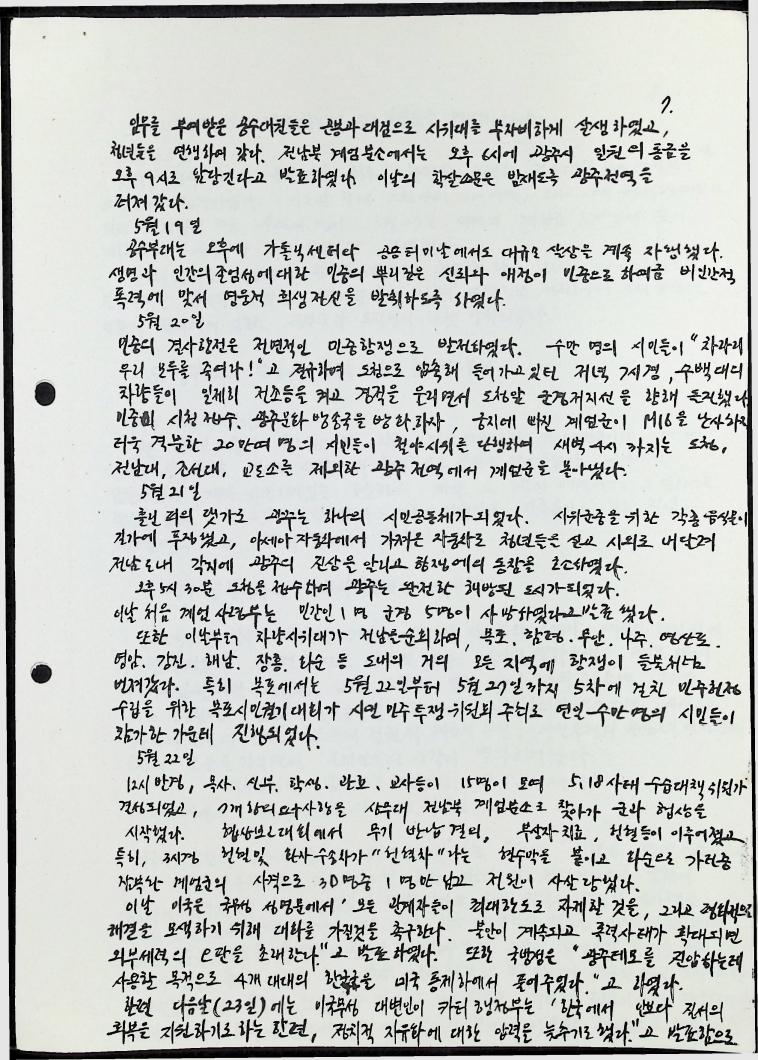 7.
임무를 부여받은 공수대원들은 곤봉과 대검으로 시위대를 무자비하게 살생하였고,
청년들을 연행하여 갔다. 전남북 계엄분소에서는 오후 6시에 광주시 일원의 통금을
오후 9시로 앞당긴다고 발표하였다. 이날의 학살소문은 밤새도록 광주전역을
퍼져갔다.
5월 19일
공수부대는 오후에 가톨릭센터와 공용터미날에서도 대규모 살상을 계속 자행했다.
생명과 인간의 존엄성에 대한 민중의 뿌리깊은 신뢰와 애정이 민중으로 하여금 비인간적
폭력에 맞서 영웅적 희생정신을 발휘하도록 하였다.
5월 20일
민중의 결사항전은 전면적인 민중항쟁으로 발전하였다. 수만 명의 시민들이 "차라리
우리 모두를 죽여라!"고 절규하며 도청으로 압축해 들어가고 있던 저녁 7시경, 수백대의
차량들이 일제히 전조등을 켜고 경적을 울리면서 도청앞 군경저지선을 향해 돌진했다
민중의 시청 접수, 광주문화방송국을 방화하자, 궁지에 빠진 계엄군이 M16을 난사하자
더욱 격분한 20만여 명의 시민들이 철야시위를 단행하여 새벽 4시 까지는 도청,
전남대, 조선대, 교도소를 제외한 광주 전역에서 계엄군을 몰아냈다.
5월 21일
흘린 피의 댓가로 광주는 하나의 시민공동체가 되었다. 시위군중을 위한 각종 음식물이
길가에 푸짐했고, 아세아 자동차에서 가져온 자동차로 청년들은 싣고 시외로 내달려
전남도내 각지에 광주의 진상을 알리고 항쟁에의 동참을 호소하였다.
오후 5시 30분 도청을 접수하여 광주는 완전한 해방된 도시가 되었다.
이날 처음 계엄사령부는 민간인 1명 군경 5명이 사망하였다고 발표했다.
또한 이날부터 차량시위대가 전남을 순회하며, 목포. 함평. 무안. 나주. 영산포.
영암. 강진. 해남. 장흥. 화순 등 도내의 거의 모든 지역에 항쟁이 들불처럼
번져갔다. 특히 목포에서는 5월 22일부터 5월 27일까지 5차에 걸친 민주헌정
수립을 위한 목포시민궐기대회가 시민 민주투쟁 위원회 주최로 연일 수만명의 시민들이
참가한 가운데 진행되었다.
5월 22일
12시 반경, 목사. 신부. 학생. 관료. 교사등이 15명이 모여 5.18사태 수습대책위원가
결성되었고, 7개항의 요구사항을 상무대 전남북 계엄분소로 찾아가 군과 협상을
시작했다. 협상보고대회에서 무기 반납 결의, 부상자치료, 헌혈등이 이루어졌고
특히, 3시경 헌혈및 환자수송차가 "헌혈차"라는 현수막을 붙이고 화순으로 가던중
잠복한 계엄군의 사격으로 30명중 1명만 남고 전원이 사살당했다.
이날 미국은 국무성 성명문에서 '모든 관계자들이 최대한도로 자제할 것을, 그리고 평화적으로
해결을 모색하기 위해 대화를 가질것을 촉구한다. 불안이 계속되고 폭력사태가 확대되면
외부세력의 오판을 초래한다."고 발표하였다. 또한 국방성은 "광주데모를 진압하는데
사용할 목적으로 4개 대대의 한국군을 미국 통제하에서 풀어주었다."고 하였다.
한편 다음날(23일)에는 미국무성 대변인이 카터 행정부는 '한국에서 안보와 질서의
회복을 지원하기로 하는 한편, 정치적 자유화에 대한 압력을 늦추기로 했다."고 발표함으로